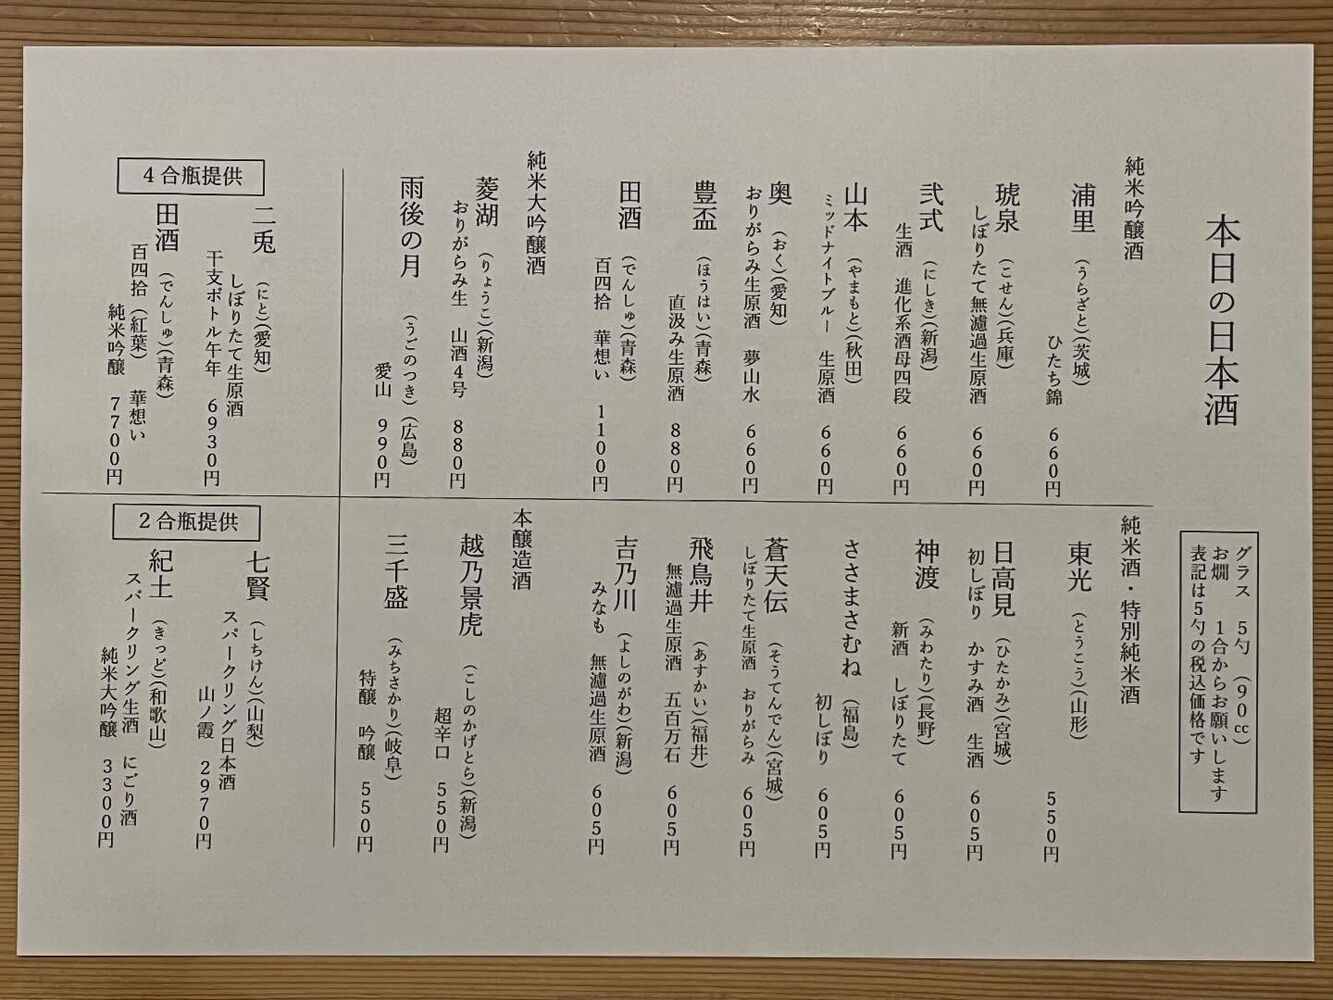 本日の日本酒
グラス　5勺　(90cc)
お燗　1合からお願いします
表記は5勺の税込価格です
純米吟醸酒
浦里　(うらざと)(茨城)
ひたち錦　660円
琥泉　(こせん)(兵庫)
しぼりたて無濾過生原酒　660円
弐式　(にしき)(新潟)
生酒　進化系酒母四段　660円
山本　(やまもと)(秋田)
ミッドナイトブルー　生原酒　660円
奥　(おく)(愛知)
おりがらみ生原酒　夢山水　660円
豊盃　(ほうはい)(青森)
直汲み生原酒　880円
田酒　(でんしゅ)(青森)
百四拾　華想い　1100円
純米大吟醸酒
菱湖　(りょうこ)(新潟)
おりがらみ生　山酒4号　880円
雨後の月　(うごのつき)(広島)
愛山　990円
純米酒・特別純米酒
東光　(とうこう)(山形)
550円
日高見　(ひたかみ)(宮城)
初しぼり　かすみ酒　生酒　605円
神渡　(みわたり)(長野)
新酒　しぼりたて　605円
ささまさむね　(福島)
初しぼり　605円
蒼天伝　(そうてんでん)(宮城)
しぼりたて生原酒　おりがらみ　605円
飛鳥井　(あすかい)(福井)
無濾過生原酒　五百万石　605円
吉乃川　(よしのがわ)(新潟)
みなも　無濾過生原酒　605円
本醸造酒
越乃景虎　(こしのかげとら)(新潟)
超辛口　550円
三千盛　(みちさかり)(岐阜)
特醸　吟醸　550円
4合瓶提供
二兎　(にと)(愛知)
しぼりたて生原酒
干支ボトル午年　6930円
田酒　(でんしゅ)(青森)
百四拾　(紅葉)　華想い
純米吟醸　7700円
2合瓶提供
七賢　(しちけん)(山梨)
スパークリング日本酒
山ノ霞　2970円
紀土　(きっど)(和歌山)
スパークリング生酒　にごり酒
純米大吟醸　3300円